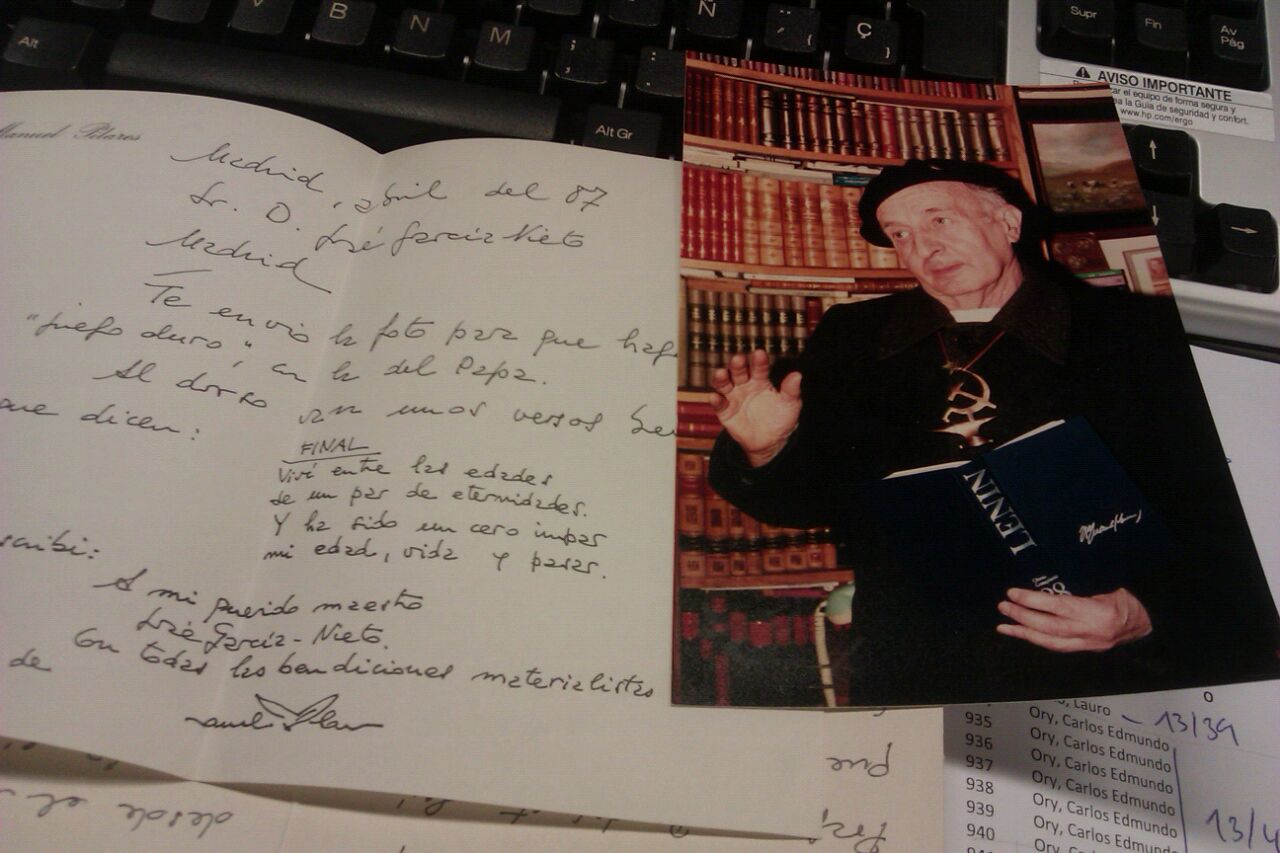 Alt
V
B
N
M
Ñ
Ç
}
;
,
:
.
Alt Gr
Supr
Fin
Av
Pág
AVISO IMPORTANTE
el equipo de forma segura y
la Guía de seguridad y confort.
www.hp.com/ergo
Manuel Pilares
Madrid, abril del 87
Sr. D. José García Nieto
Madrid
Te envío la foto para que haga
"juego duro", con la del Papa.
Al dorso van unos versos
que dicen:
FINAL
Viví entre las edades
de un par de eternidades.
Y ha sido un cero impar
mi edad, vida y pasar.
scribi:
A mi querido maestro
José García-Nieto.
Con todas las bendiciones materialistas
de
LENIN
Lauro
13/39
935 Ory, Carlos Edmundo
936 Ory, Carlos Edmundo
937 Ory, Carlos Edmundo
938 Ory, Carlos Edmundo
939 Ory, Carlos Edmundo
940 Ory, Carlos Edmundo
13/4
desde el